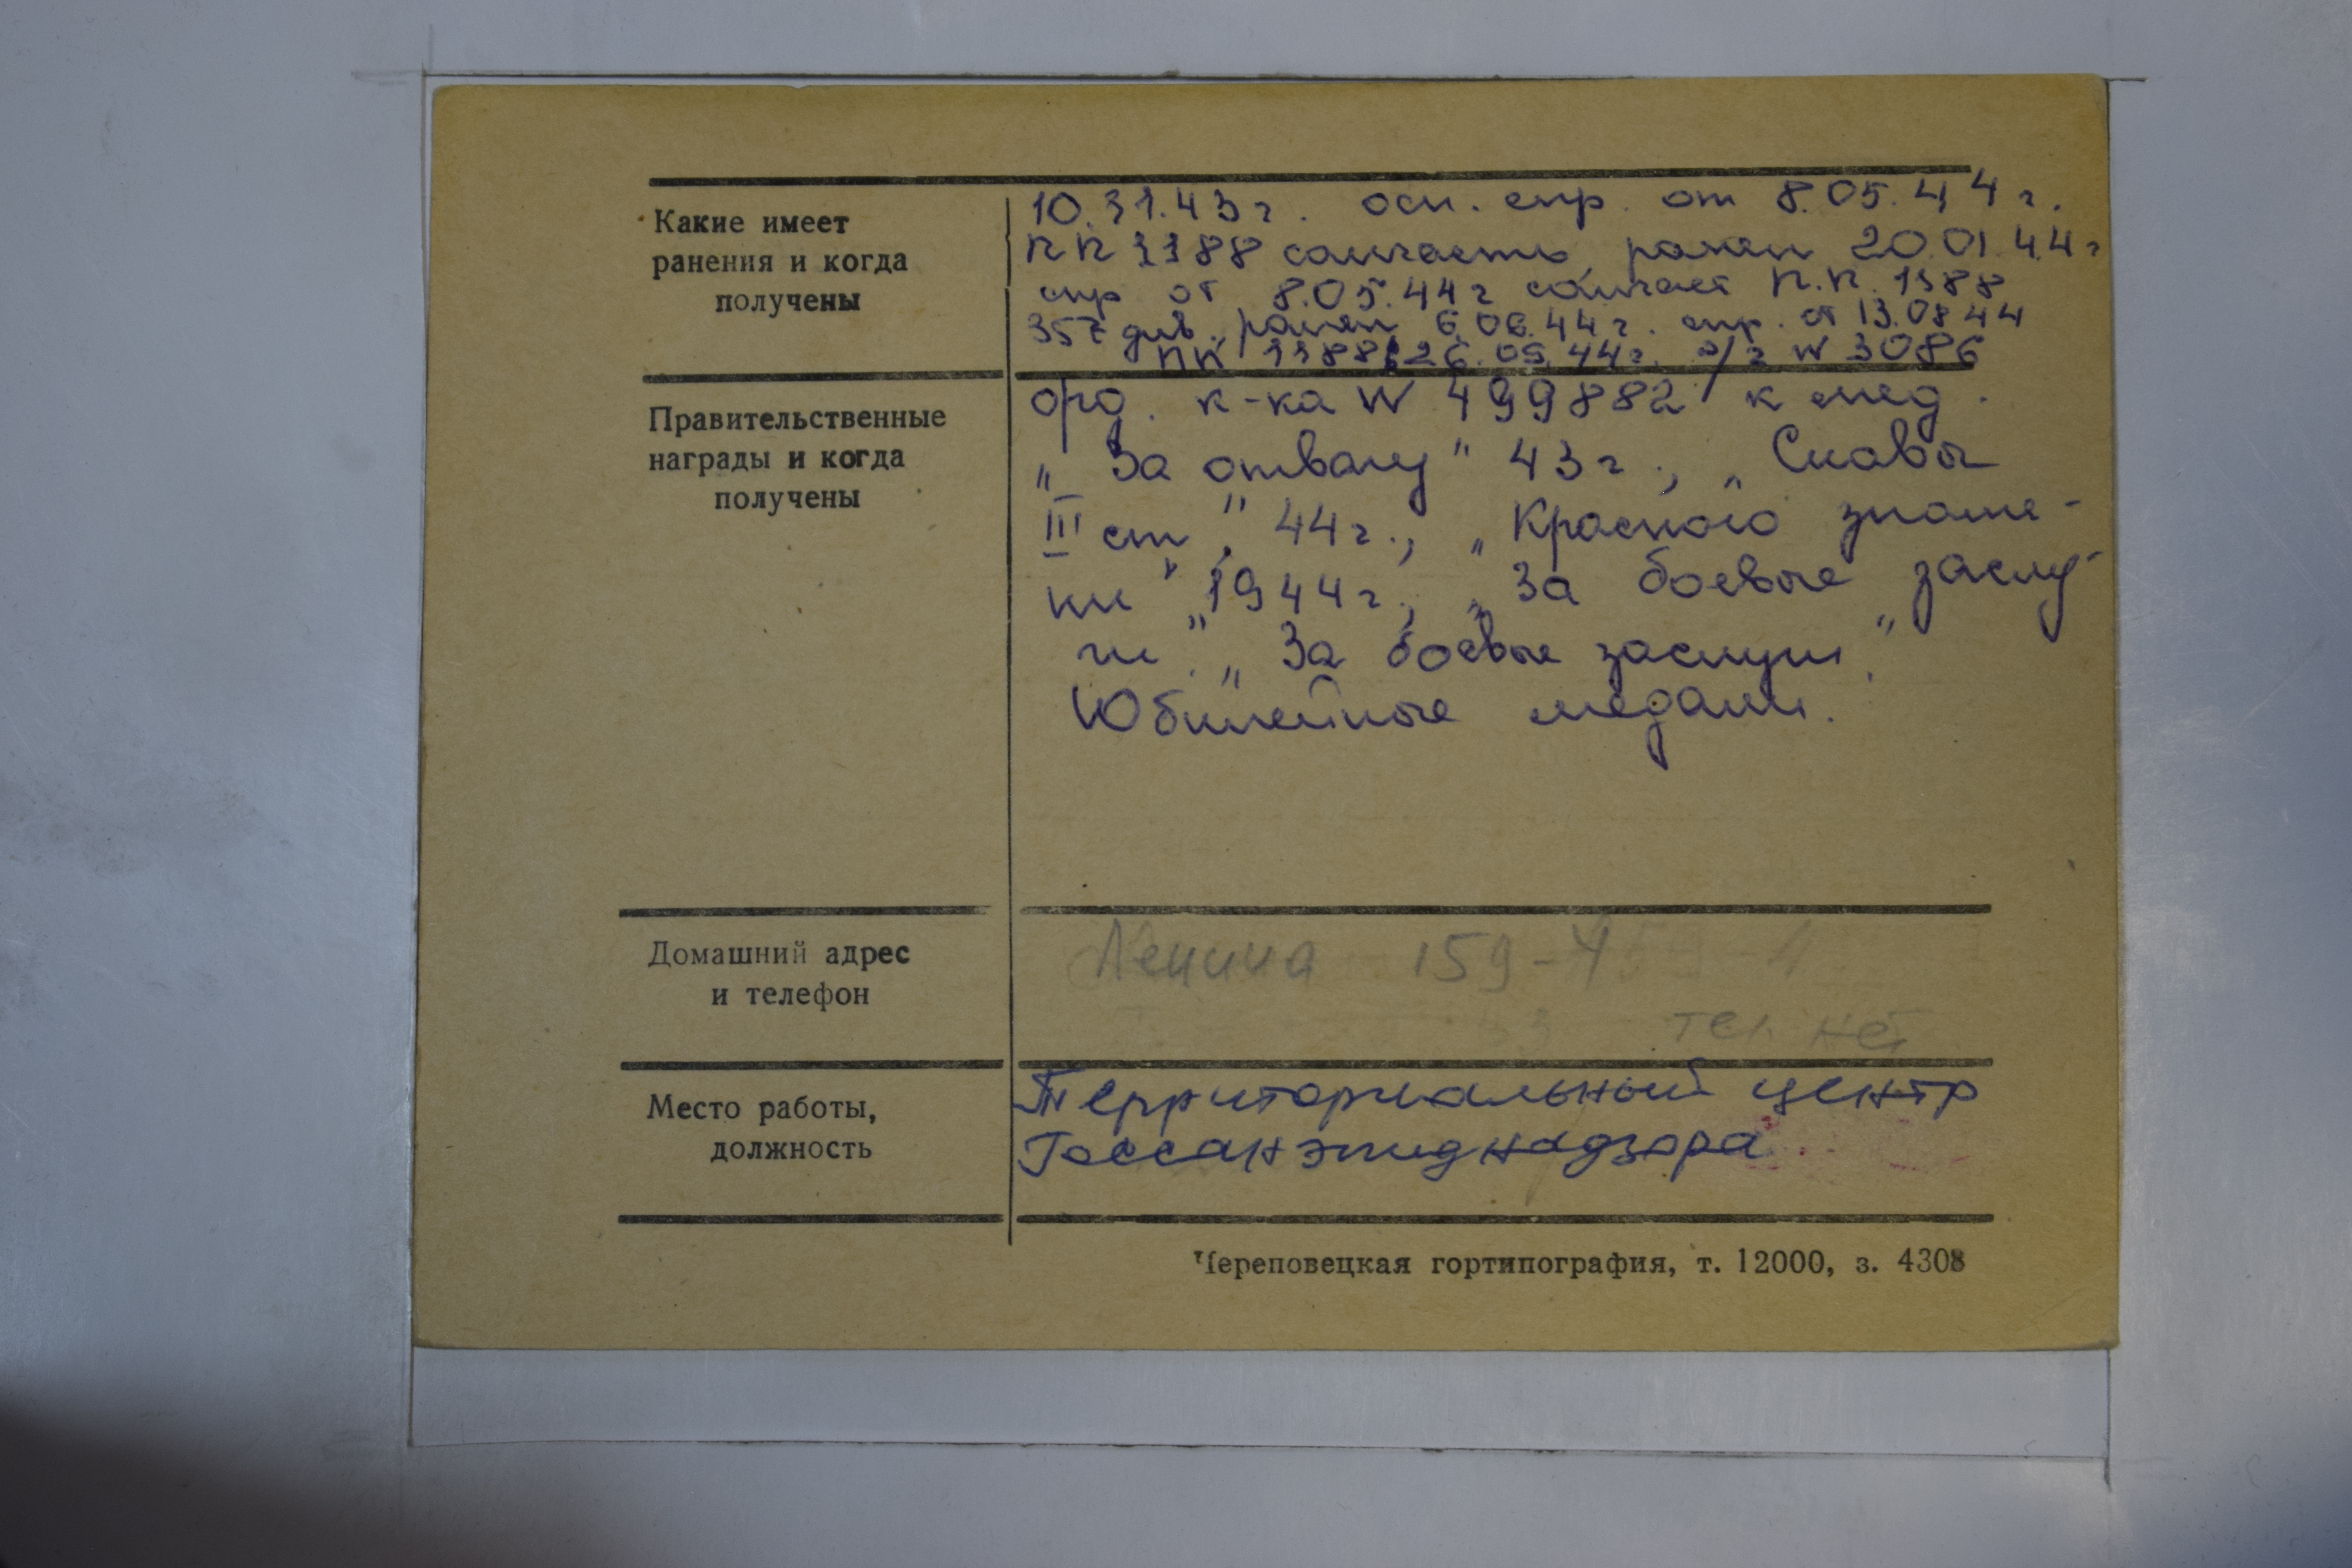 Какие имеет
ранения и когда
получены
10.11.43г. осн. спр. от 8.05.44г.
ПП 1188 санчасть, ранен 20.01.44г
спр от 8.05.44г санчаст П.П. 1188
357 див., ранен 6.06.44г. спр. от 13.08 44
ПП 1188, 26.05.44г. э/г № 3086
Правительственные
награды и когда
получены
орд. к-ка № 499882 к мед.
„За отвагу" 43г., „Славы
III ст", 44г., „Красного знаме-
ни" 1944г., „За боевые заслу-
ги". „За боевые заслуги".
Юбилейные медали.
Домашний адрес
и телефон
Ленина 159-4
тел нет
Место работы,
должность
Территориальный центр
Госсанэпиднадзора
Череповецкая гортипография, т. 12000, з. 4308